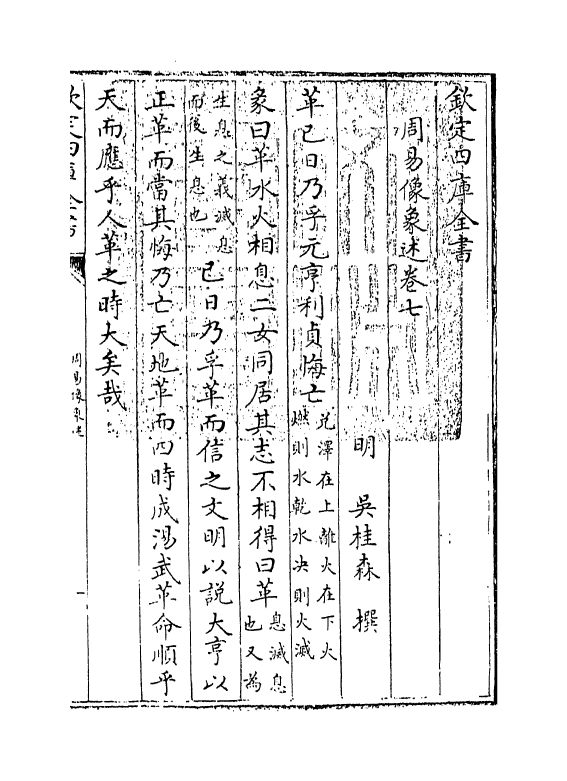 欽定四庫全書
周易像象述卷七
明 吳桂森 撰
革已日乃孚元亨利貞悔亡兑澤在上離火在下火
燃則水乾水决則火滅
彖曰革水火相息二女同居其志不相得曰革息滅息
也又為
生息之義滅息
而後生息也已日乃孚革而信之文明以説大亨以
正革而當其悔乃亡天地革而四時成湯武革命順乎
天而應乎人革之時大矣哉
欽定四庫全書
周易像象述
一